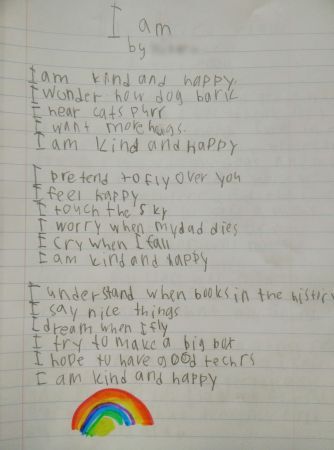 I am
by
I am kind and happy.
I wonder how dog bark
I hear cats purr
I want more hugs.
I am kind and happy
I pretend to fly over you
I feel happy
I touch the sky
I worry when my dad dies
I cry when I fall
I am kind and happy
I understand when books in the histiry
I say nice things
I dream when I fly
I try to make a big
I hope to have good techrs
I am kind and happy